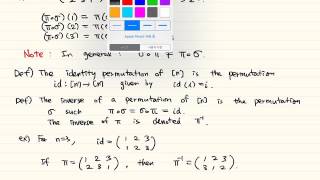 (π∘σ)(1) = π(
(π∘σ)(2) = π(
(π∘σ)(3) = π(
Note : In general : σ∘π ≠ π∘σ.
Def) The identity permutation of [n] is the permutation
id : [n] → [n] given by id(i) = i.
Def) The inverse of a permutation of [n] is the permutation
σ such π∘σ = σ∘π = id.
The inverse of π is denoted π⁻¹
ex) For n=3, id = ( 1 2 3
1 2 3 )
If π = ( 1 2 3
2 3 1 ), then π⁻¹ = ( 1 2 3
3 1 2 )